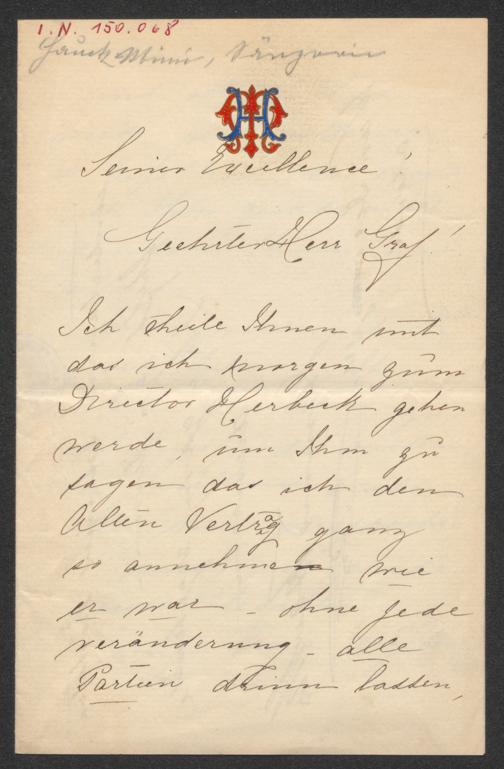 I.N. 150.068
Hauck Minnie, Sängerin
MH
Seiner Excellence!
Geehrter Herr Graf!
Ich theile Ihnen mit
das ich morgen zum
Director Herbeck gehen
werde, um Ihm zu
sagen das ich den
Alten Vertrag ganz
so annehme wie
er war – ohne jede
veränderung – alle
Partien drinn lassen,